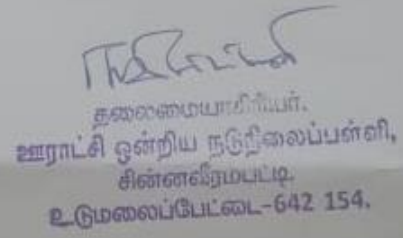 தலைமையாசிரியர்.
ஊராட்சி ஒன்றிய நடுநிலைப்பள்ளி,
சின்னவீரம்பட்டி
உடுமலைப்பேட்டை-642 154.